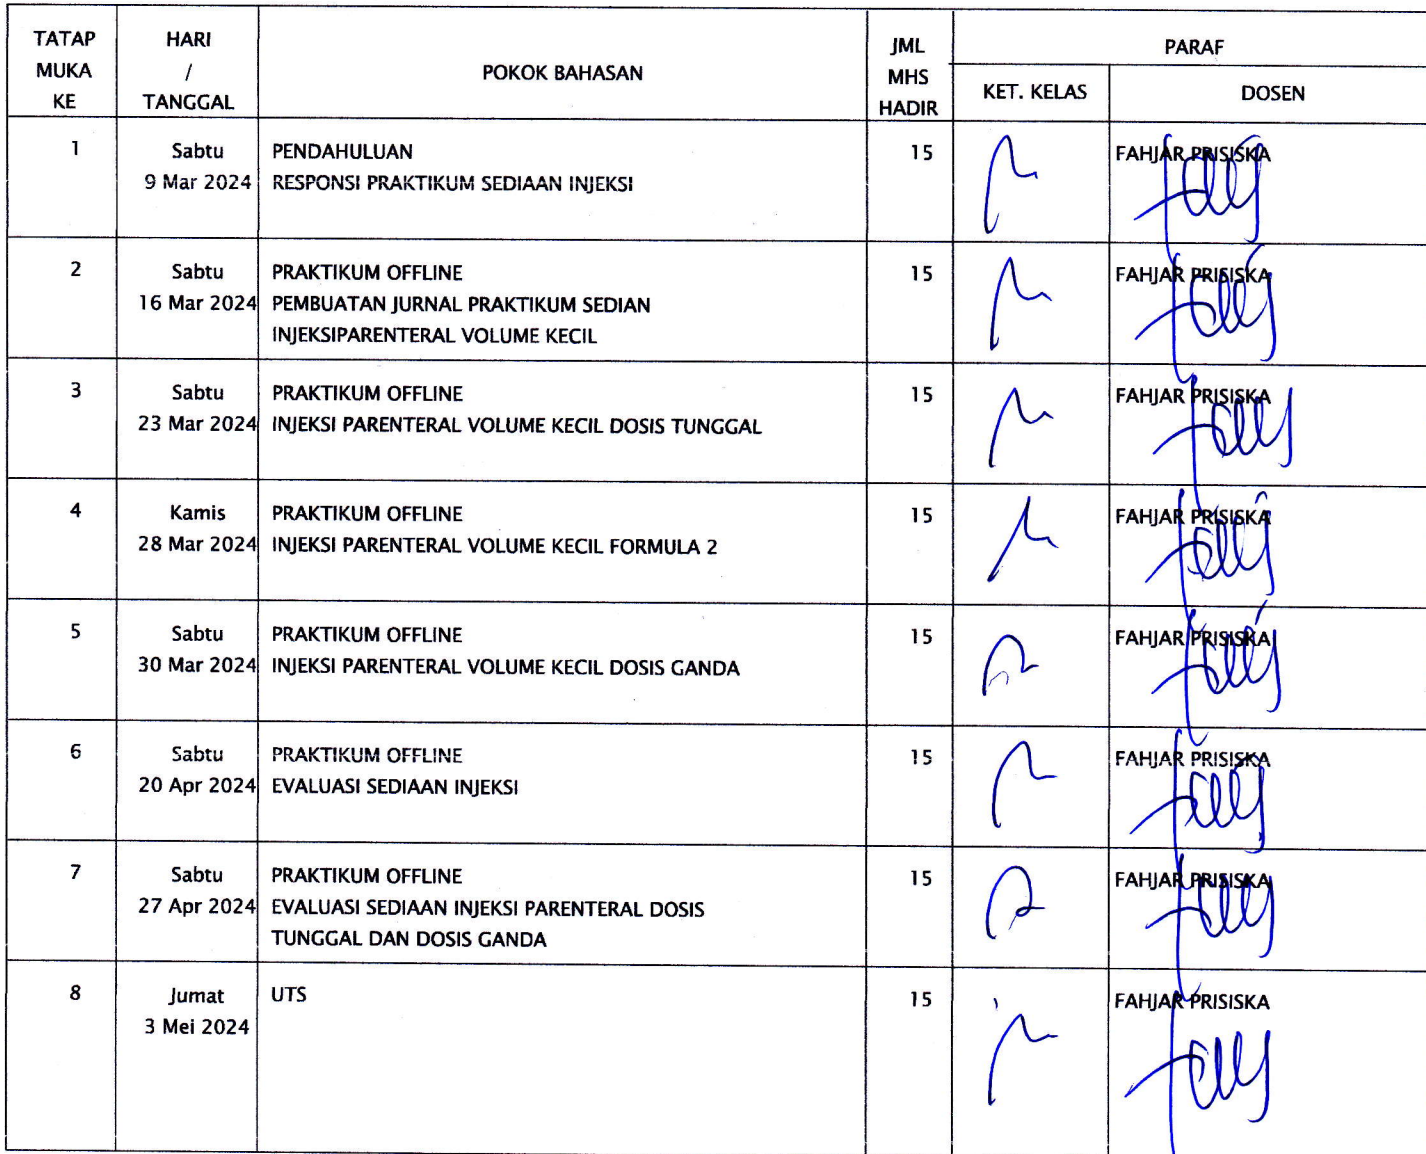 TATAP MUKA KE
HARI / TANGGAL
POKOK BAHASAN
JML MHS HADIR
PARAF
KET. KELAS
DOSEN
1
Sabtu
9 Mar 2024
PENDAHULUAN
RESPONSI PRAKTIKUM SEDIAAN INJEKSI
15
FAHJAR PRISISKA
2
Sabtu
16 Mar 2024
PRAKTIKUM OFFLINE
PEMBUATAN JURNAL PRAKTIKUM SEDIAN
INJEKSIPARENTERAL VOLUME KECIL
15
FAHJAR PRISISKA
3
Sabtu
23 Mar 2024
PRAKTIKUM OFFLINE
INJEKSI PARENTERAL VOLUME KECIL DOSIS TUNGGAL
15
FAHJAR PRISISKA
4
Kamis
28 Mar 2024
PRAKTIKUM OFFLINE
INJEKSI PARENTERAL VOLUME KECIL FORMULA 2
15
FAHJAR PRISISKA
5
Sabtu
30 Mar 2024
PRAKTIKUM OFFLINE
INJEKSI PARENTERAL VOLUME KECIL DOSIS GANDA
15
FAHJAR PRISISKA
6
Sabtu
20 Apr 2024
PRAKTIKUM OFFLINE
EVALUASI SEDIAAN INJEKSI
15
FAHJAR PRISISKA
7
Sabtu
27 Apr 2024
PRAKTIKUM OFFLINE
EVALUASI SEDIAAN INJEKSI PARENTERAL DOSIS
TUNGGAL DAN DOSIS GANDA
15
FAHJAR PRISISKA
8
Jumat
3 Mei 2024
UTS
15
FAHJAR PRISISKA